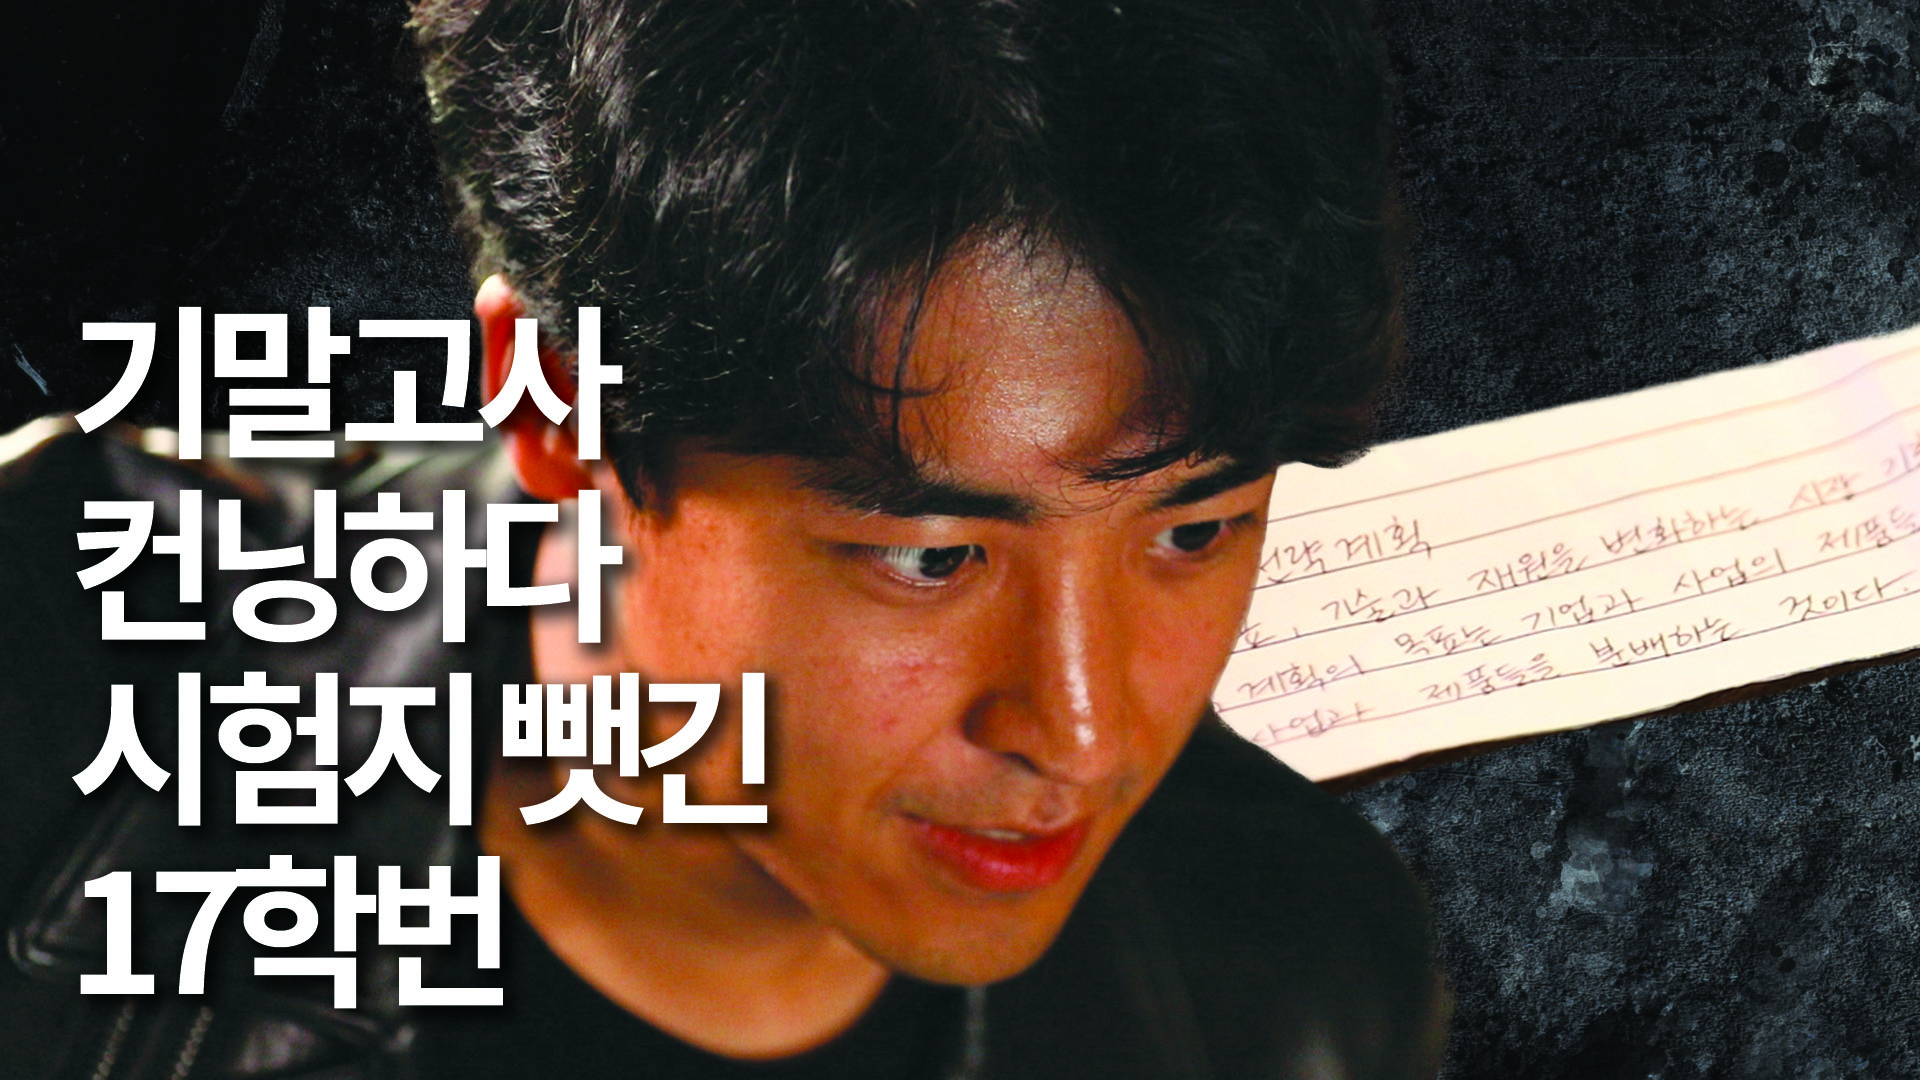 기말고사
컨닝하다
시험지 뺏긴
17학번
전략 계획
기술과 재원을 변화하는 시장
계획의 목표는 기업과 사업의 제품들
사업과 제품들을 분배하는 것이다.